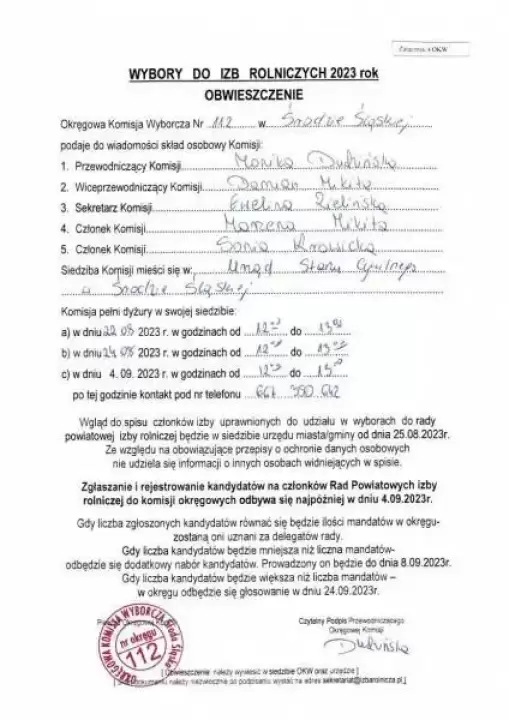 WYBORY DO IZB ROLNICZYCH 2023 rok
OBWIESZCZENIE
Okręgowa Komisja Wyborcza Nr 112 w Środzie Śląskiej
podaje do wiadomości skład osobowy Komisji:
1. Przewodniczący Komisji Monika Dudzińska
2. Wiceprzewodniczący Komisji Damian Mikita
3. Sekretarz Komisji Ewelina Zielińska
4. Członek Komisji Marzena Mikita
5. Członek Komisji Sonia Krawicka
Siedziba Komisji mieści się w: Urząd Stanu Cywilnego
w Środzie Śląskiej
Komisja pełni dyżury w swojej siedzibie:
a) w dniu 22 08 2023 r. w godzinach od 12 00 do 13 00
b) w dniu 24 08 2023 r. w godzinach od 12 00 do 13 00
c) w dniu 4. 09. 2023 r. w godzinach od 12 00 do 13 00
po tej godzinie kontakt pod nr telefonu 667 390 642
Wgląd do spisu członków izby uprawnionych do udziału w wyborach do rady
powiatowej izby rolniczej będzie w siedzibie urzędu miasta/gminy od dnia 25.08.2023r.
Ze względu na obowiązujące przepisy o ochronie danych osobowych
nie udziela się informacji o innych osobach widniejących w spisie.
Zgłaszanie i rejestrowanie kandydatów na członków Rad Powiatowych izby
rolniczej do komisji okręgowych odbywa się najpóźniej w dniu 4.09.2023r.
Gdy liczba zgłoszonych kandydatów równać się będzie ilości mandatów w okręgu-
zostaną oni uznani za delegatów rady.
Gdy liczba kandydatów będzie mniejsza niż liczna mandatów-
odbędzie się dodatkowy nabór kandydatów. Prowadzony on będzie do dnia 8.09.2023r.
Gdy liczba kandydatów będzie większa niż liczba mandatów –
w okręgu odbędzie się głosowanie w dniu 24.09.2023r.
Czytelny Podpis Przewodniczącego
Okręgowej Komisji
Dudzińska
OKRĘGOWA KOMISJA WYBORCZA Środa Śląska
nr okręgu
112
[ Obwieszczenie należy wywiesić w siedzibie OKW oraz urzędzie ]
dokumentu należy niezwłocznie po podpisaniu wysłać na adres sekretariat@izbarolnicza.pl ]